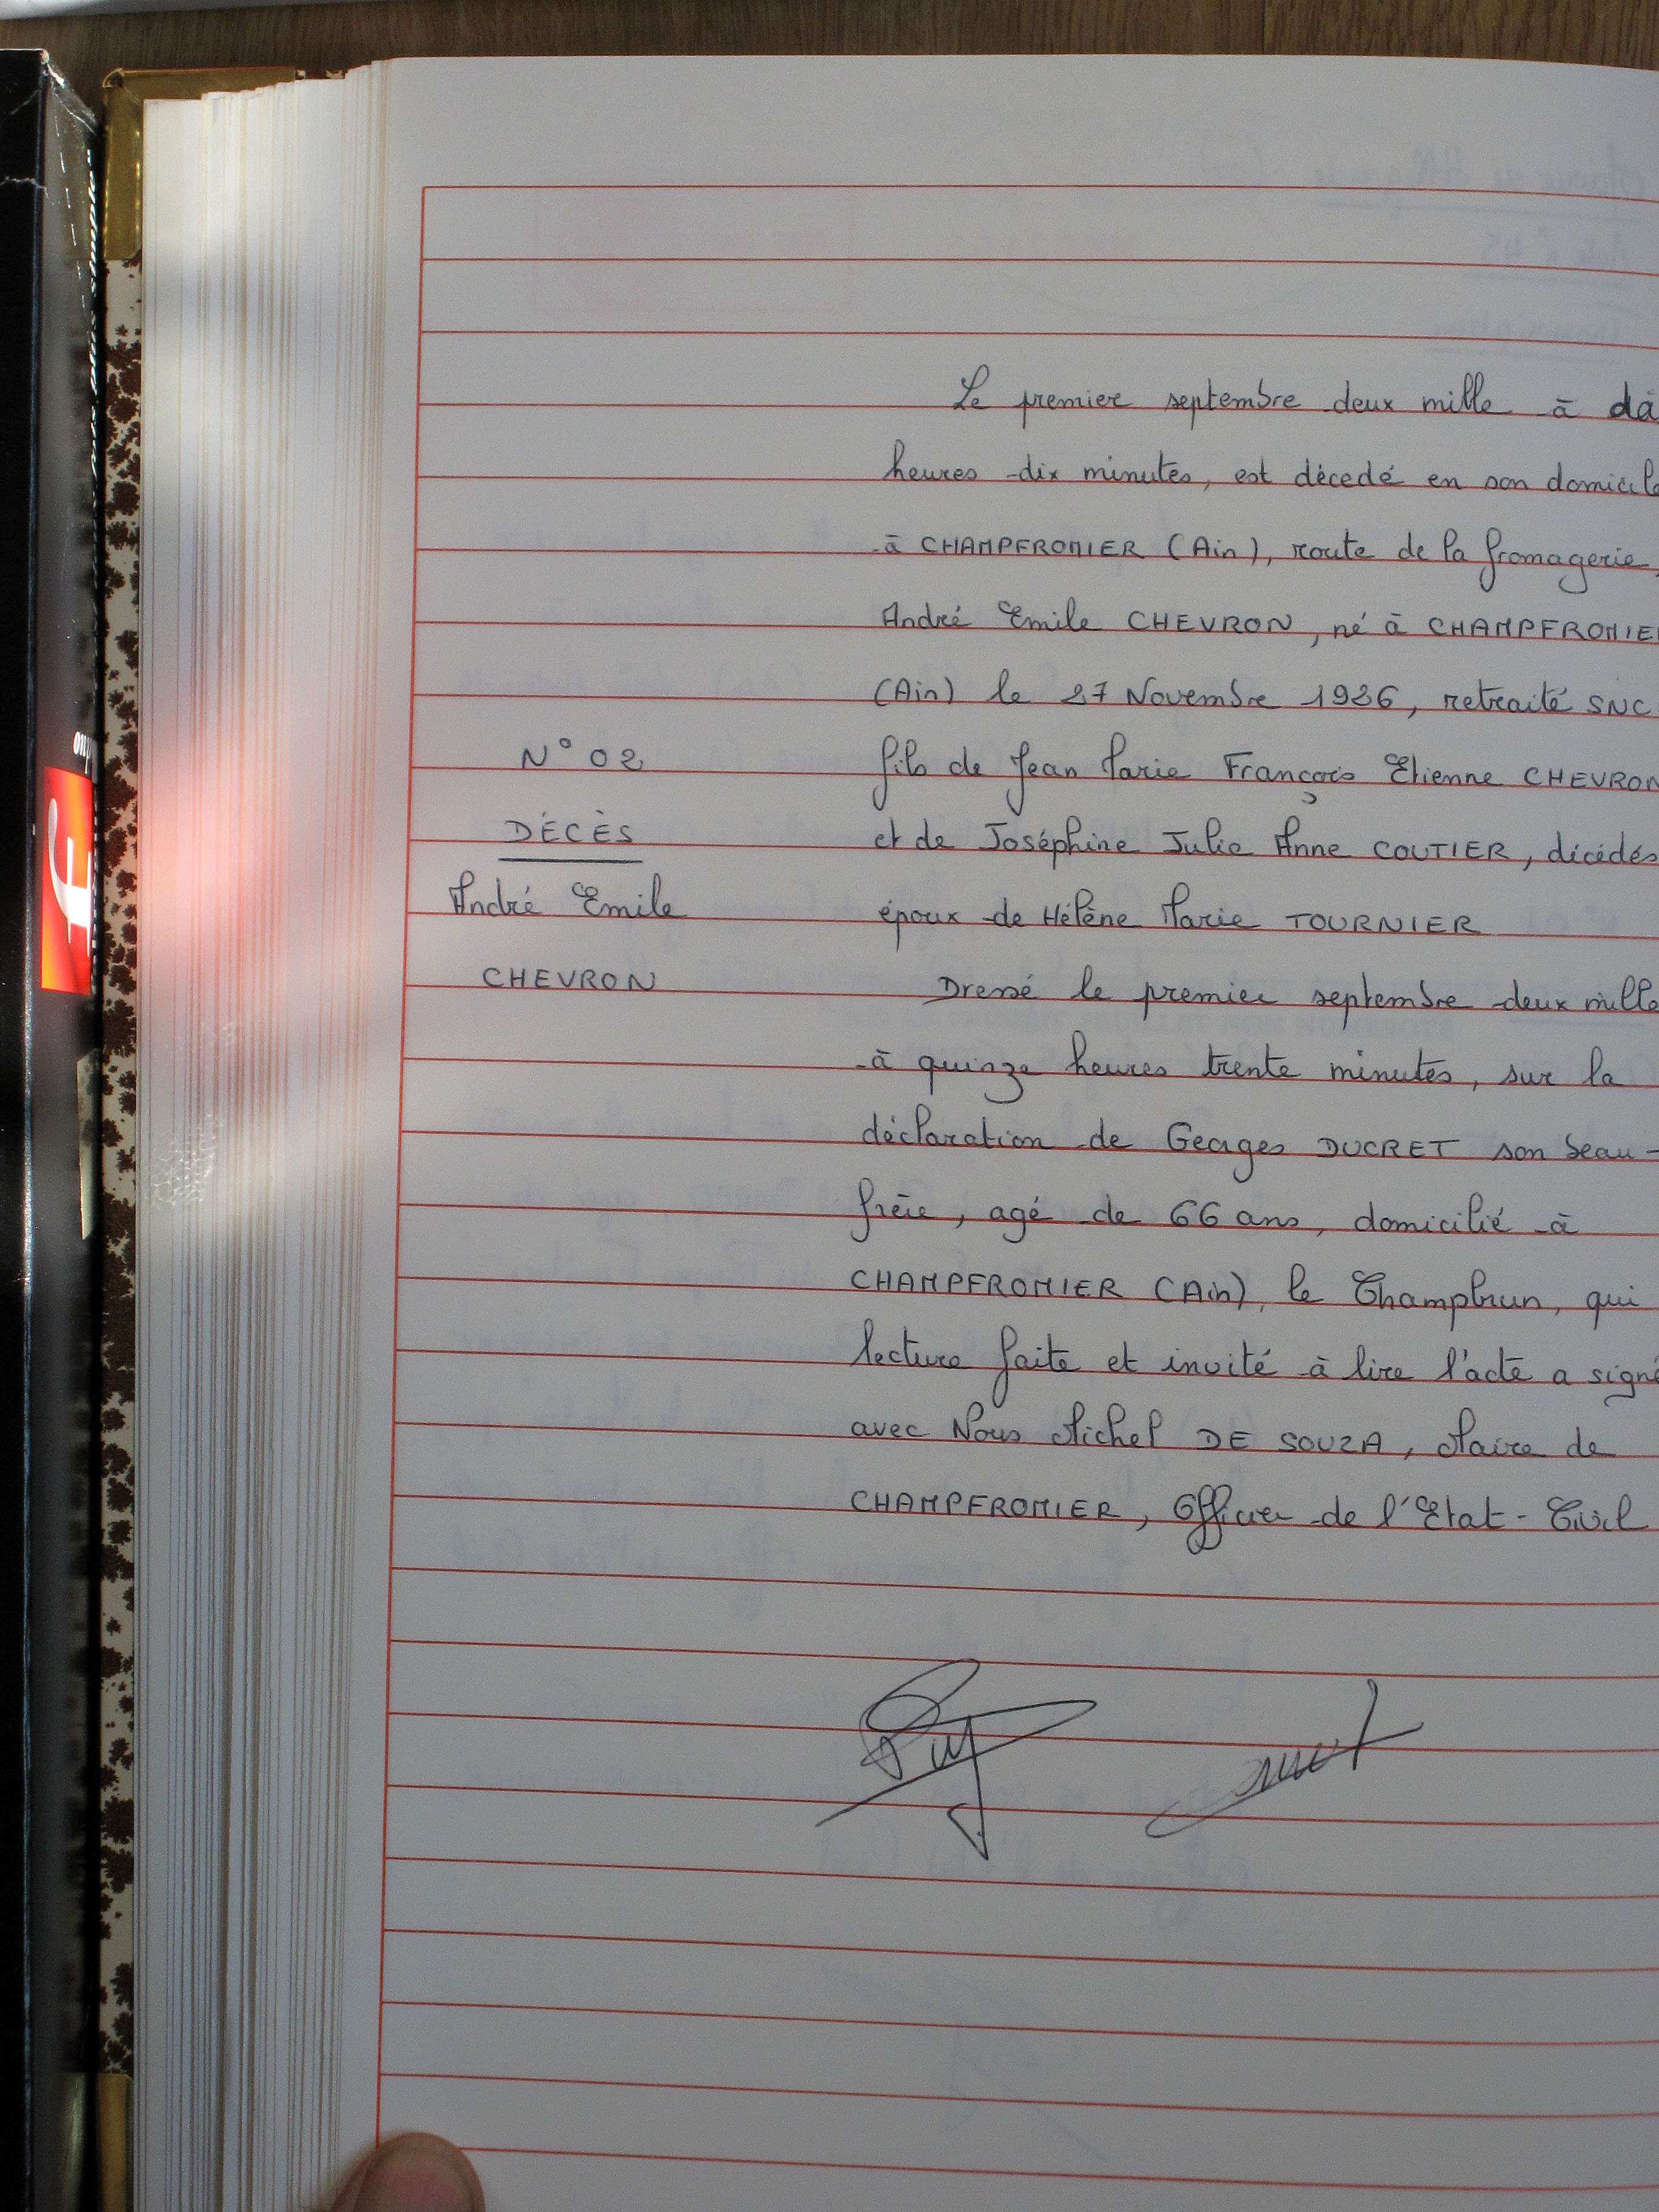 Le premier septembre deux mille à
heures dix minutes, est décedé en son domicile
à CHAMPFROMIER (Ain), route de la fromagerie,
André Emile CHEVRON, né à CHAMPFROMIER
(Ain) le 27 Novembre 1926, retraité SNC
N° 02
fils de Jean Marie François Etienne CHEVRON
DÉCÈS
et de Joséphine Julie Anne COUTIER, décédés
André Emile
époux de Hélène Marie TOURNIER
CHEVRON
Dressé le premier septembre deux mille
à quinze heures trente minutes, sur la
déclaration de Georges DUCRET son beau-
frère, agé de 66 ans, domicilié à
CHAMPFROMIER (Ain), le Champbrun, qui
lecture faite et invité à lire l'acte a signé
avec Nous Michel DE SOUZA, Maire de
CHAMPFROMIER, Officier de l'Etat-Civil